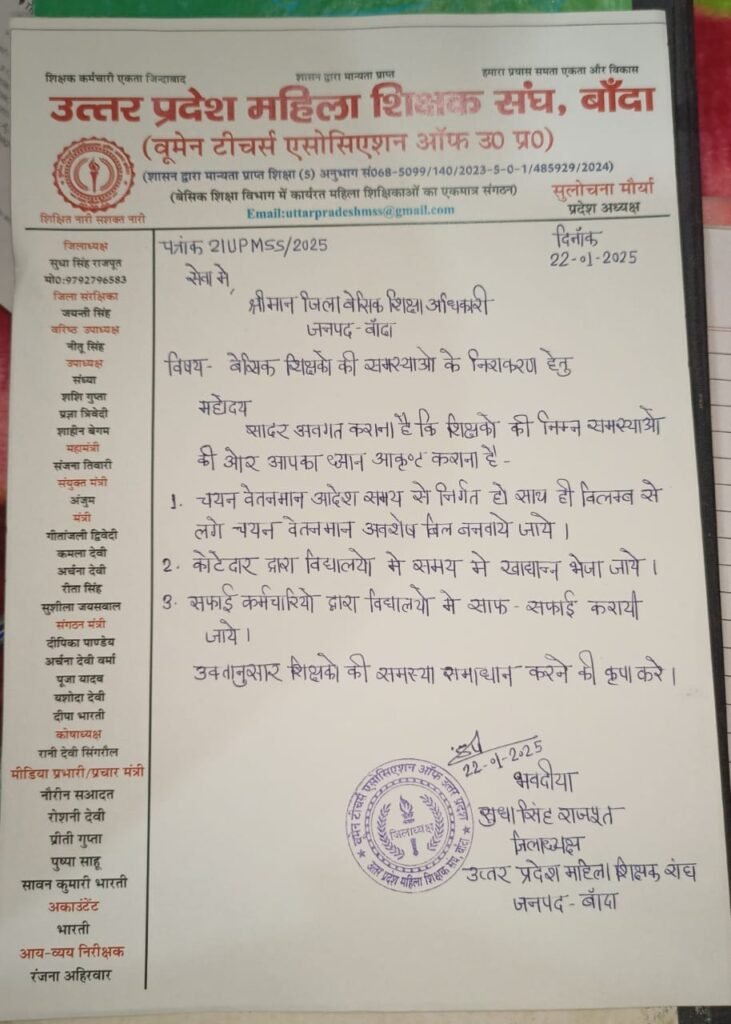 शिक्षक कर्मचारी एकता जिन्दाबाद
शासन द्वारा मान्यता प्राप्त
हमारा प्रयास समता एकता और विकास
उत्तर प्रदेश महिला शिक्षक संघ, बाँदा
(वूमेन टीचर्स एसोसिएशन ऑफ उ0 प्र0)
(शासन द्वारा मान्यता प्राप्त शिक्षा (5) अनुभाग सं068-5099/140/2023-5-0-1/485929/2024)
(बेसिक शिक्षा विभाग में कार्यरत महिला शिक्षिकाओं का एकमात्र संगठन)
Email:uttarpradeshmss@gmail.com
सुलोचना मौर्या
प्रदेश अध्यक्ष
शिक्षित नारी सशक्त नारी
जिलाध्यक्ष
सुधा सिंह राजपूत
मो0:9792796583
जिला संरक्षिका
जयन्ती सिंह
वरिष्ठ उपाध्यक्ष
नीतू सिंह
उपाध्यक्ष
संध्या
शशि गुप्ता
प्रज्ञा त्रिवेदी
शाहीन बेगम
महामंत्री
संजना तिवारी
संयुक्त मंत्री
अंजुम
मंत्री
गीतांजली द्विवेदी
कमला देवी
अर्चना देवी
रीता सिंह
सुशीला जयसवाल
संगठन मंत्री
दीपिका पाण्डेय
अर्चना देवी वर्मा
पूजा यादव
यशोदा देवी
दीपा भारती
कोषाध्यक्ष
रानी देवी सिंगरौल
मीडिया प्रभारी/प्रचार मंत्री
नौरीन सआदत
रोशनी देवी
प्रीती गुप्ता
पुष्पा साहू
सावन कुमारी भारती
अकाउंटेंट
भारती
आय-व्यय निरीक्षक
रंजना अहिरवार
पत्रांक 21UPMSS/2025
दिनाँक
22-01-2025
सेवा मे,
श्रीमान जिला बेसिक शिक्षा अधिकारी
जनपद - बाँदा
विषय- बेसिक शिक्षको की समस्याओ के निराकरण हेतु
महोदय
सादर अवगत कराना है कि शिक्षको की निम्न समस्याओ
की ओर आपका ध्यान आकृष्ट कराना है -
1. चयन वेतनमान आदेश समय से निर्गत हो साथ ही विलम्ब से
लगे चयन वेतनमान अवशेष बिल बनवाये जाये ।
2. कोटेदार द्वारा विद्यालयो मे समय मे खाद्यान्न भेजा जाये ।
3. सफाई कर्मचारियो द्वारा विद्यालयो मे साफ - सफाई करायी
जाये ।
उक्तानुसार शिक्षको की समस्या समाधान करने की कृपा करे ।
22-01-2025
भवदीया
सुधा सिंह राजपूत
जिलाध्यक्ष
उत्तर प्रदेश महिला शिक्षक संघ
जनपद - बाँदा
वूमेन टीचर्स एसोसिएशन ऑफ उत्तर प्रदेश
जिलाध्यक्ष
उत्तर प्रदेश महिला शिक्षक संघ, बाँदा